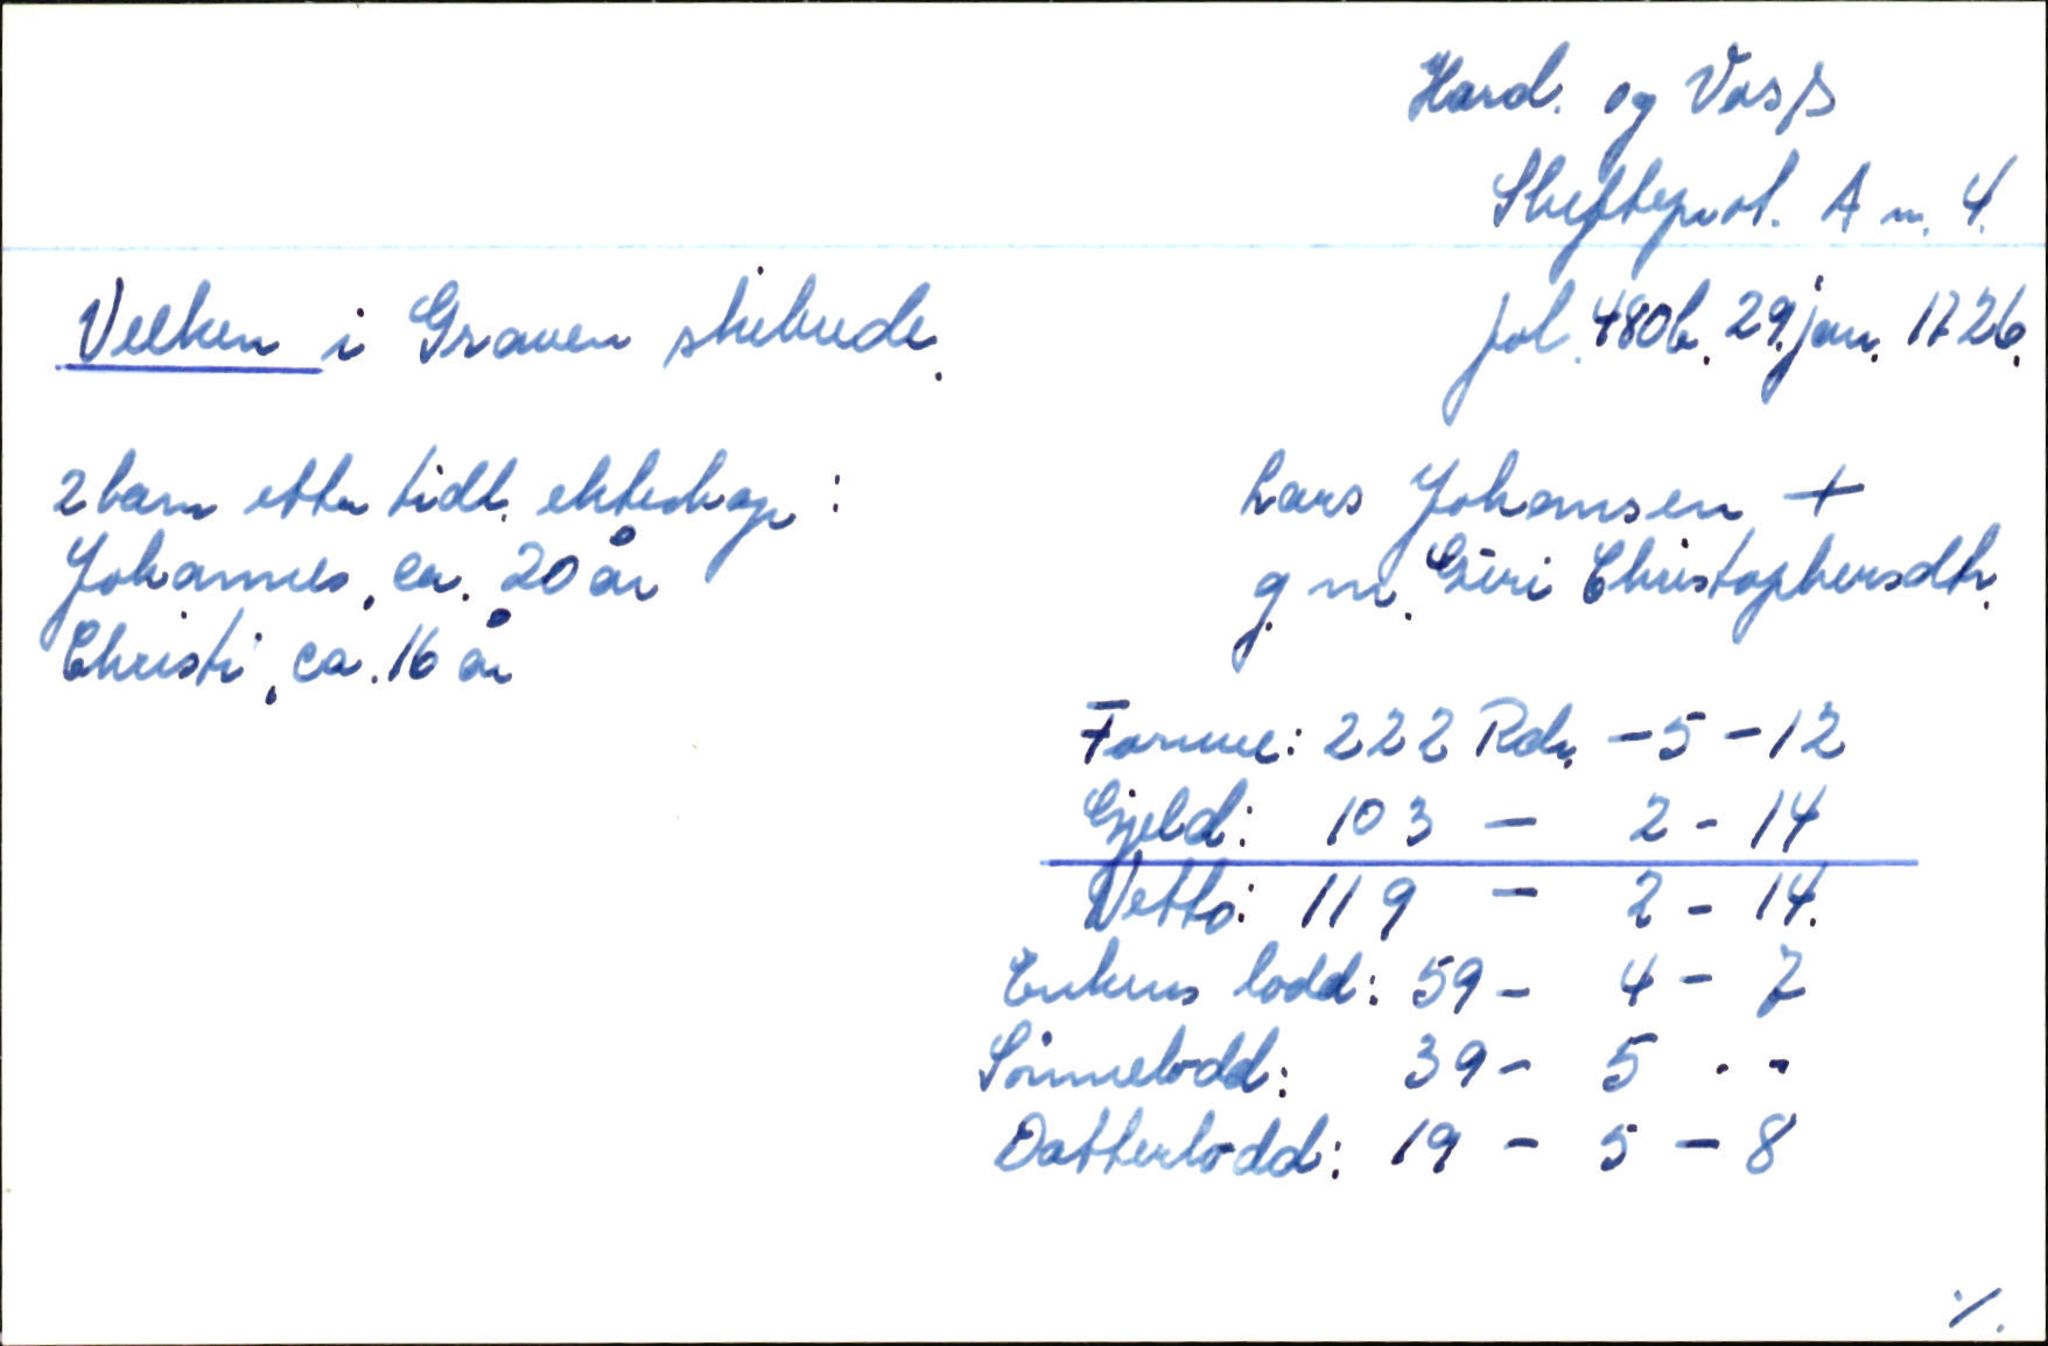 Hard. og Voss
Skifteprot. A nr. 4.
Velken i Graven skibrede.
fol. 480b. 29. jan. 1726.
2 barn etter tidl. ekteskap:
Johannes, ca. 20 år
Christi, ca. 16 år
Lars Johansen +
g. m. Giri Christophersdtr.
Formue: 222 Rdr. - 5 - 12
Gjeld: 103 - 2 - 14
Netto: 119 - 2 - 14.
Enkens lodd: 59 - 4 - 7
Sønnelodd: 39 - 5 - -
Datterlodd: 19 - 5 - 8
./.